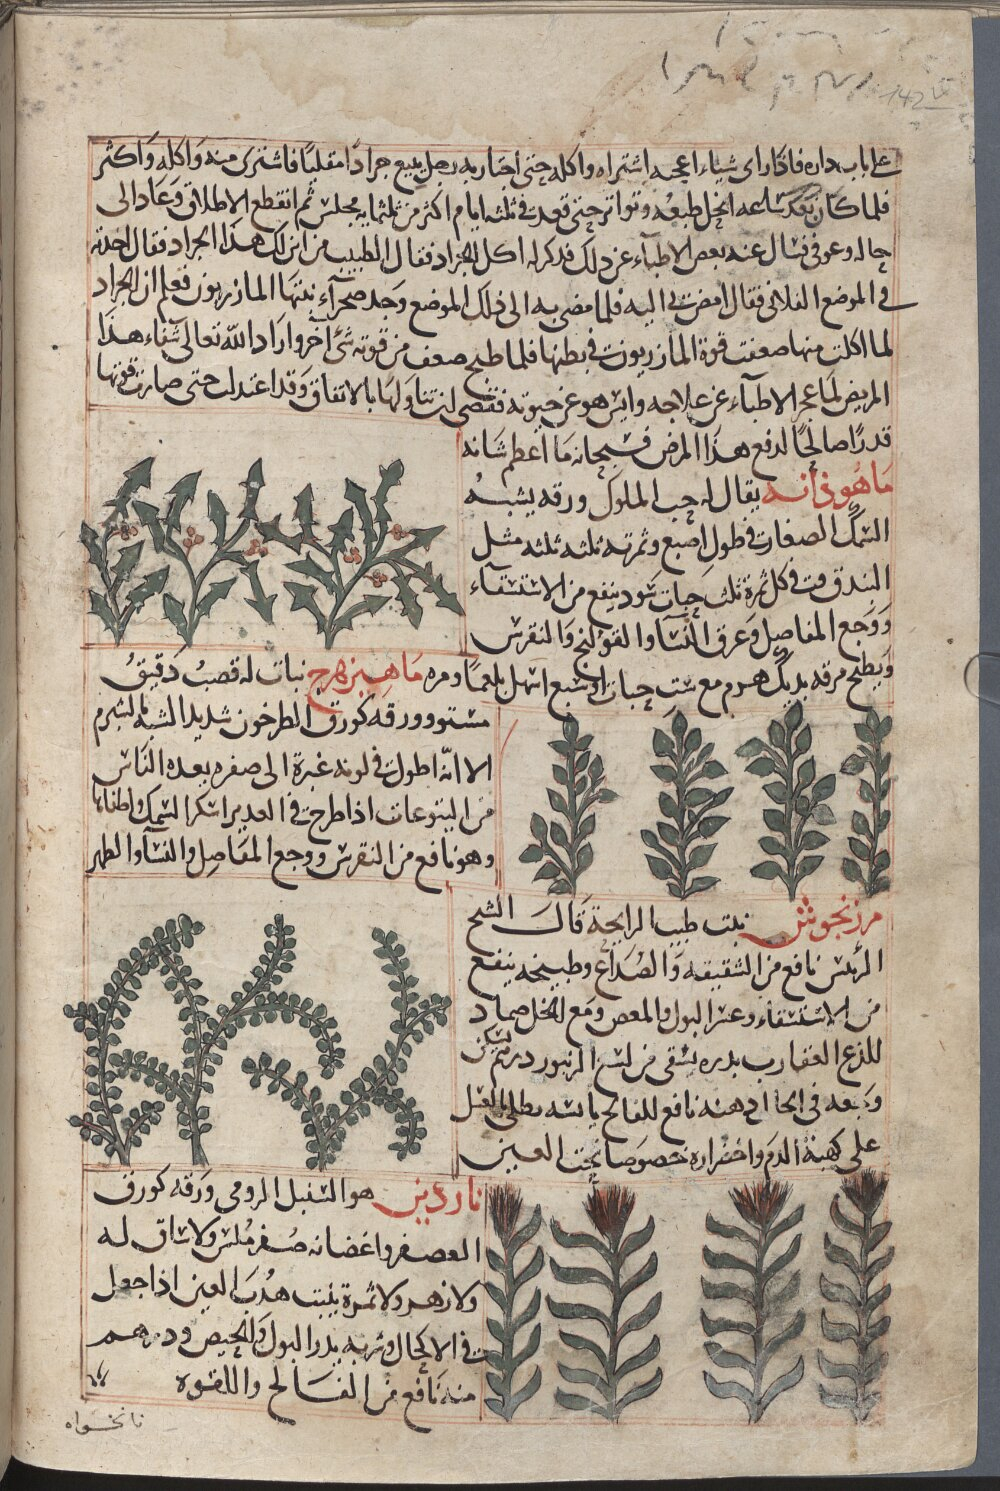 142
على باب داره فاذا راى شياء اعجبه اشتراه واكله حتى اجتاز به رجل يبيع جرادا مقليا فاشترى منه واكله واكثر
فلما كان بعد ساعه انحل طبعه وتواتر حتى قعد فى ثلثه ايام اكثر من ثلثمايه مجلس ثم انقطع الاطلاق وعاد الى
حاله وعوفى فسال عنه بعض الاطباء عن ذلك فذكر له اكل الجراد فقال الطبيب من اين لك هذا الجراد فقال اخذته
فى الموضع الفلانى فقال امض بى اليه فلما مضى به الى ذلك الموضع وجد صحرآء نبتها المازريون فعلم ان الجراد
لما اكلت منها ضعفت قوة المازريون فى بطنها فلما طبخ ضعف من قوته شئ آخر واراد الله تعالى شفاء هذا
المريض لما عجز الاطباء عن علاجه وايس هو عن حيوته فقضى له تناولها بالاتفاق وقد اعتدلت حتى صارت قوتها
قدرا صالحا لدفع هذا المرض فسبحانه ما اعظم شانه
ماهوذانه يقال له حب الملوك ورقه يشبه
السمك الصغار فى طول اصبع وثمرته ثلثه ثلثه مثل
البندق وفى كل ثمرة ثلث حبات سود ينفع من الاستسقآء
ووجع المفاصل وعرق النسآ والقولنج والنقرس
ويطبخ مرقه بديك هرم مع ست حبات او سبع اسهل بلغما ومره
ماهيزهرج نبات له قصب دقيق
مستو وورقه كورق الطرخون شديد الشبه بالشبرم
الا انه اطول فى لونه غبرة الى صفره يعده الناس
من اليتوعات اذا طرح فى الغدير اسكر السمك واطفاها
وهو نافع من النقرس ووجع المفاصل والنسآ والظهر
مرزنجوش نبت طيب الرايحة قال الشيخ
الرئيس نافع من الشقيقه والصداع وطبيخه ينفع
من الاستسقاء وعسر البول والمغص ومع الخل ضماد
للذع العقارب بدره يسقى من لسع الزنبور درهم يسكن
وجعه فى الحال دهنه نافع للفالج يابسه يطلى بالعسل
على كهبة الدم واخضراره خصوصا تحت العين
ناردين هو السنبل الرومى ورقه كورق
العصفر واغصانه صفر ملس ولا ساق له
ولا زهر ولا ثمرة ينبت هدب العين اذا جعل
فى الاكحال وشربه يدر البول والحيض ودرهم
منه نافع من الفالج واللقوه
نانخواه